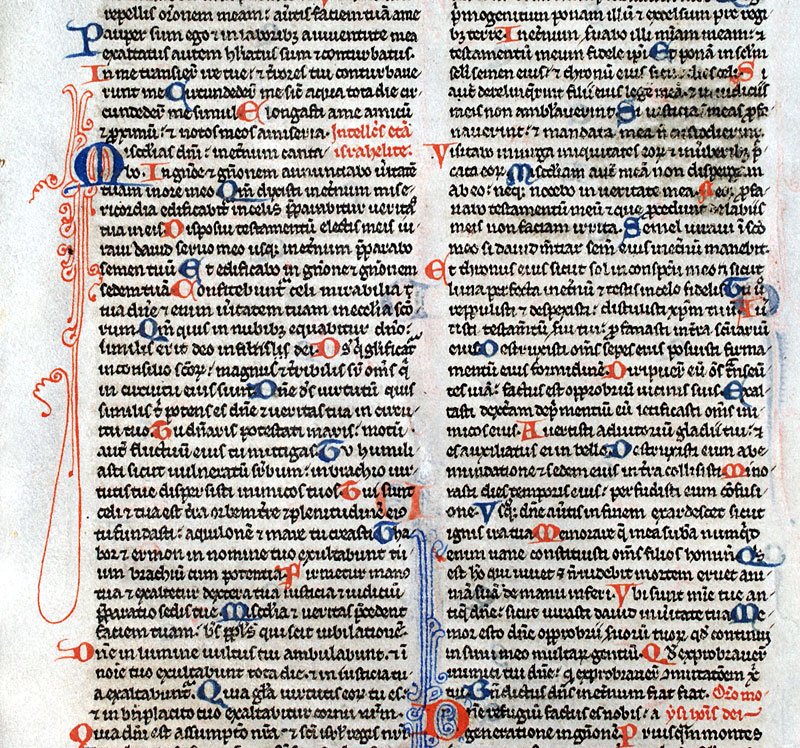 repellis oronem meam: auertis faciem tuam a me
Pauper sum ego & in laboribz a iuuentute mea
exaltatus autem humiliatus sum & conturbatus.
In me transierut ire tue: & trores tui conturbaue
runt me Circundedert me sic aqua tota die cir
cundedert me simul Elongasti a me amicu
& proximu: & notos meos a miseria. Intellcs etan
Misedias dni: ineternum canta israhelite.
bo. In gnoe & gnonem annunciabo ueritate
tuam in ore meo Qm dixisti ineternum mise
ricordia edificabit in celis preparabitur ueritas
tua in eis Disposui testamentu electis meis iu
raui dauid seruo meo usq in eternu preparabo
semen tuu Et edificabo in gnone & gnonem
sedem tua Confitebunt celi mirabilia
tua dne & enim ueritatem tuam in ecclia sco
rum Qm quis in nubibz equabitur dno:
similis erit deo in filiis dei Ds q glificat
in consilio scor: magnus & tribilis sup oms q
in circuitu eius sunt Dne ds uirtutu quis
similis t potens es dne & ueritas tua in circu
itu tuo Tu dnaris potestati maris: motu
aut fluctuu eius tu mitigas Tu humili
asti sicut uulneratu supbum: in brachio uir
tutis tue dispersisti inimicos tuos Tui sunt
celi & tua est tra orbem tre & plenitudine eius
tu fundasti: aquilone & mare tu creasti Tha
bor & ermon in nomine tuo exultabunt tu
um brachiu cum potentia Firmetur manus
tua & exaltetur dextera tua iusticia & iudiciu
preparatio sedis tue Misedia & ueritas precedent
faciem tuam: bs ppls qui scit iubilatione
Dne in lumine uultus tui ambulabunt & in
noie tuo exultabunt tota die & in iusticia tu
a exaltabunt Qua gla uirtutis eor tu es:
& in bnplacito tuo exaltabitur cornu nrm.
Quia dni est assumptio nra & sci isrl regis nri
primogenitum ponam illu & excelsum pre regi
bz terre Ineternu seruabo illi miam meam: &
testamentu meum fidele ipi Et pona in sclm
scli semen eius: & thronu eius sicut dies celi Si
aut derelinqrint filii eius lege mea & in iudiciis
meis non ambulauerint Si iusticias meas profa
nauerint: & mandata mea n custodierint
Visitabo in uirga iniquitates eor & in uerberibz pec
cata eor Misediam aute mea non dispergam
ab eo: neq nocebo in ueritate mea Neq profa
nabo testamentu meu & que procedunt de labiis
meis non faciam irrita Semel iuraui in sco
meo si dauid mentiar sem eius ineternu manebit
Et thronus eius sicut sol in conspectu meo & sicut
luna perfecta in eternu & testis in celo fidelis Tu u
reppulisti & despexisti: distulisti xpm tuu
tisti testamtu serui tui: prophanasti in terra sctuariu
eius Destruxisti oms sepes eius posuisti firma
mentu eius formidine Diripuert eu oms transeun
tes uia: factus est opprobriu uicinis suis Exal
tasti dexteram depmentiu eu letificasti oms ini
micos eius Auertisti adiutoriu gladii eius: &
es auxiliatus ei in bello Destruxisti eum ab e
mundatione & sedem eius in terra collisisti Mino
rasti dies temporis eius: perfudisti eum confusi
one Vsq dne auertis in finem exardescet sicut
ignis ira tua Memorare q mea suba numqd
enim uane constituisti oms filios hominu Quis
est ho qui uiuet & n uidebit mortem eruet ani
mam sua de manu inferi Vbi sunt mie tue an
tiq dne: sicut iurasti dauid in ueritate tua Me
mor esto dne opprobrii suoru tuor qd continui
in sinu meo multar gentiu Qd exprobrauert
inimici tui dne: q exprobrauert mutatoem x
tui Bndictus dns ineternum fiat fiat. Oro mo
Dne refugiu factus es nobis: a ysi hois dei
generatione in gnone Priusqm montes